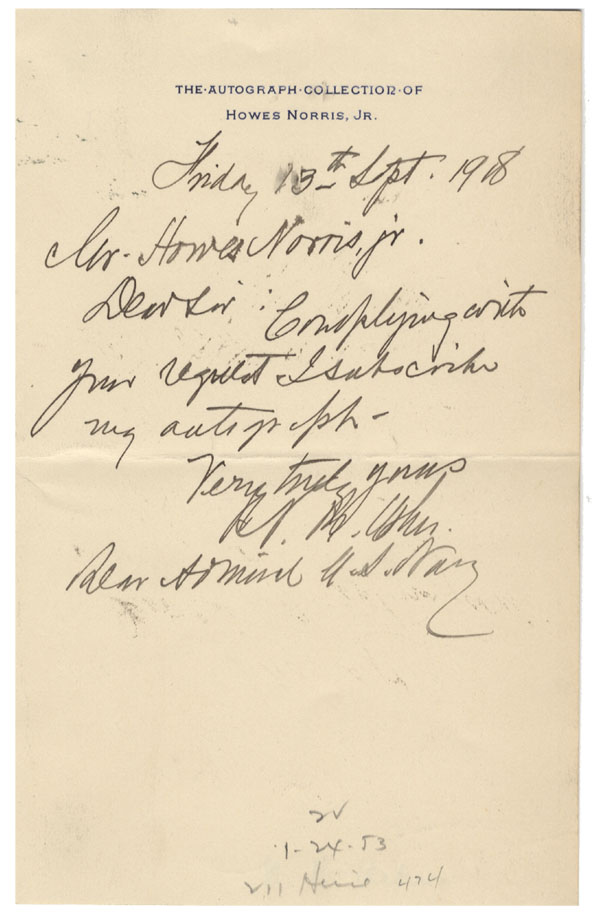 THE·AUTOGRAPH·COLLECTION·OF
HOWES NORRIS, JR.
Friday 13th Spt. 1918
Mr. Howes Norris, jr.
Dear Sir: Complying with
your request I subscribe
my autograph-
Very truly yours
N.
Rear Admiral U.S. Navy
1-24-53